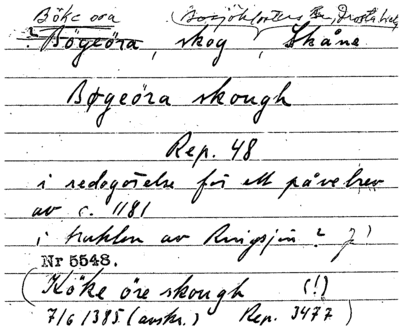 Böke ora
? Bögeöra, skog, Skåne
Bøgeöra skough
Rep. 48
i redogörelse för ett påvebrev
av c. 1181
i trakten av Ringsjön?
Nr 5548.
(Köke öre skough (!)
7/6 1385 (avskr.) Rep. 3477)